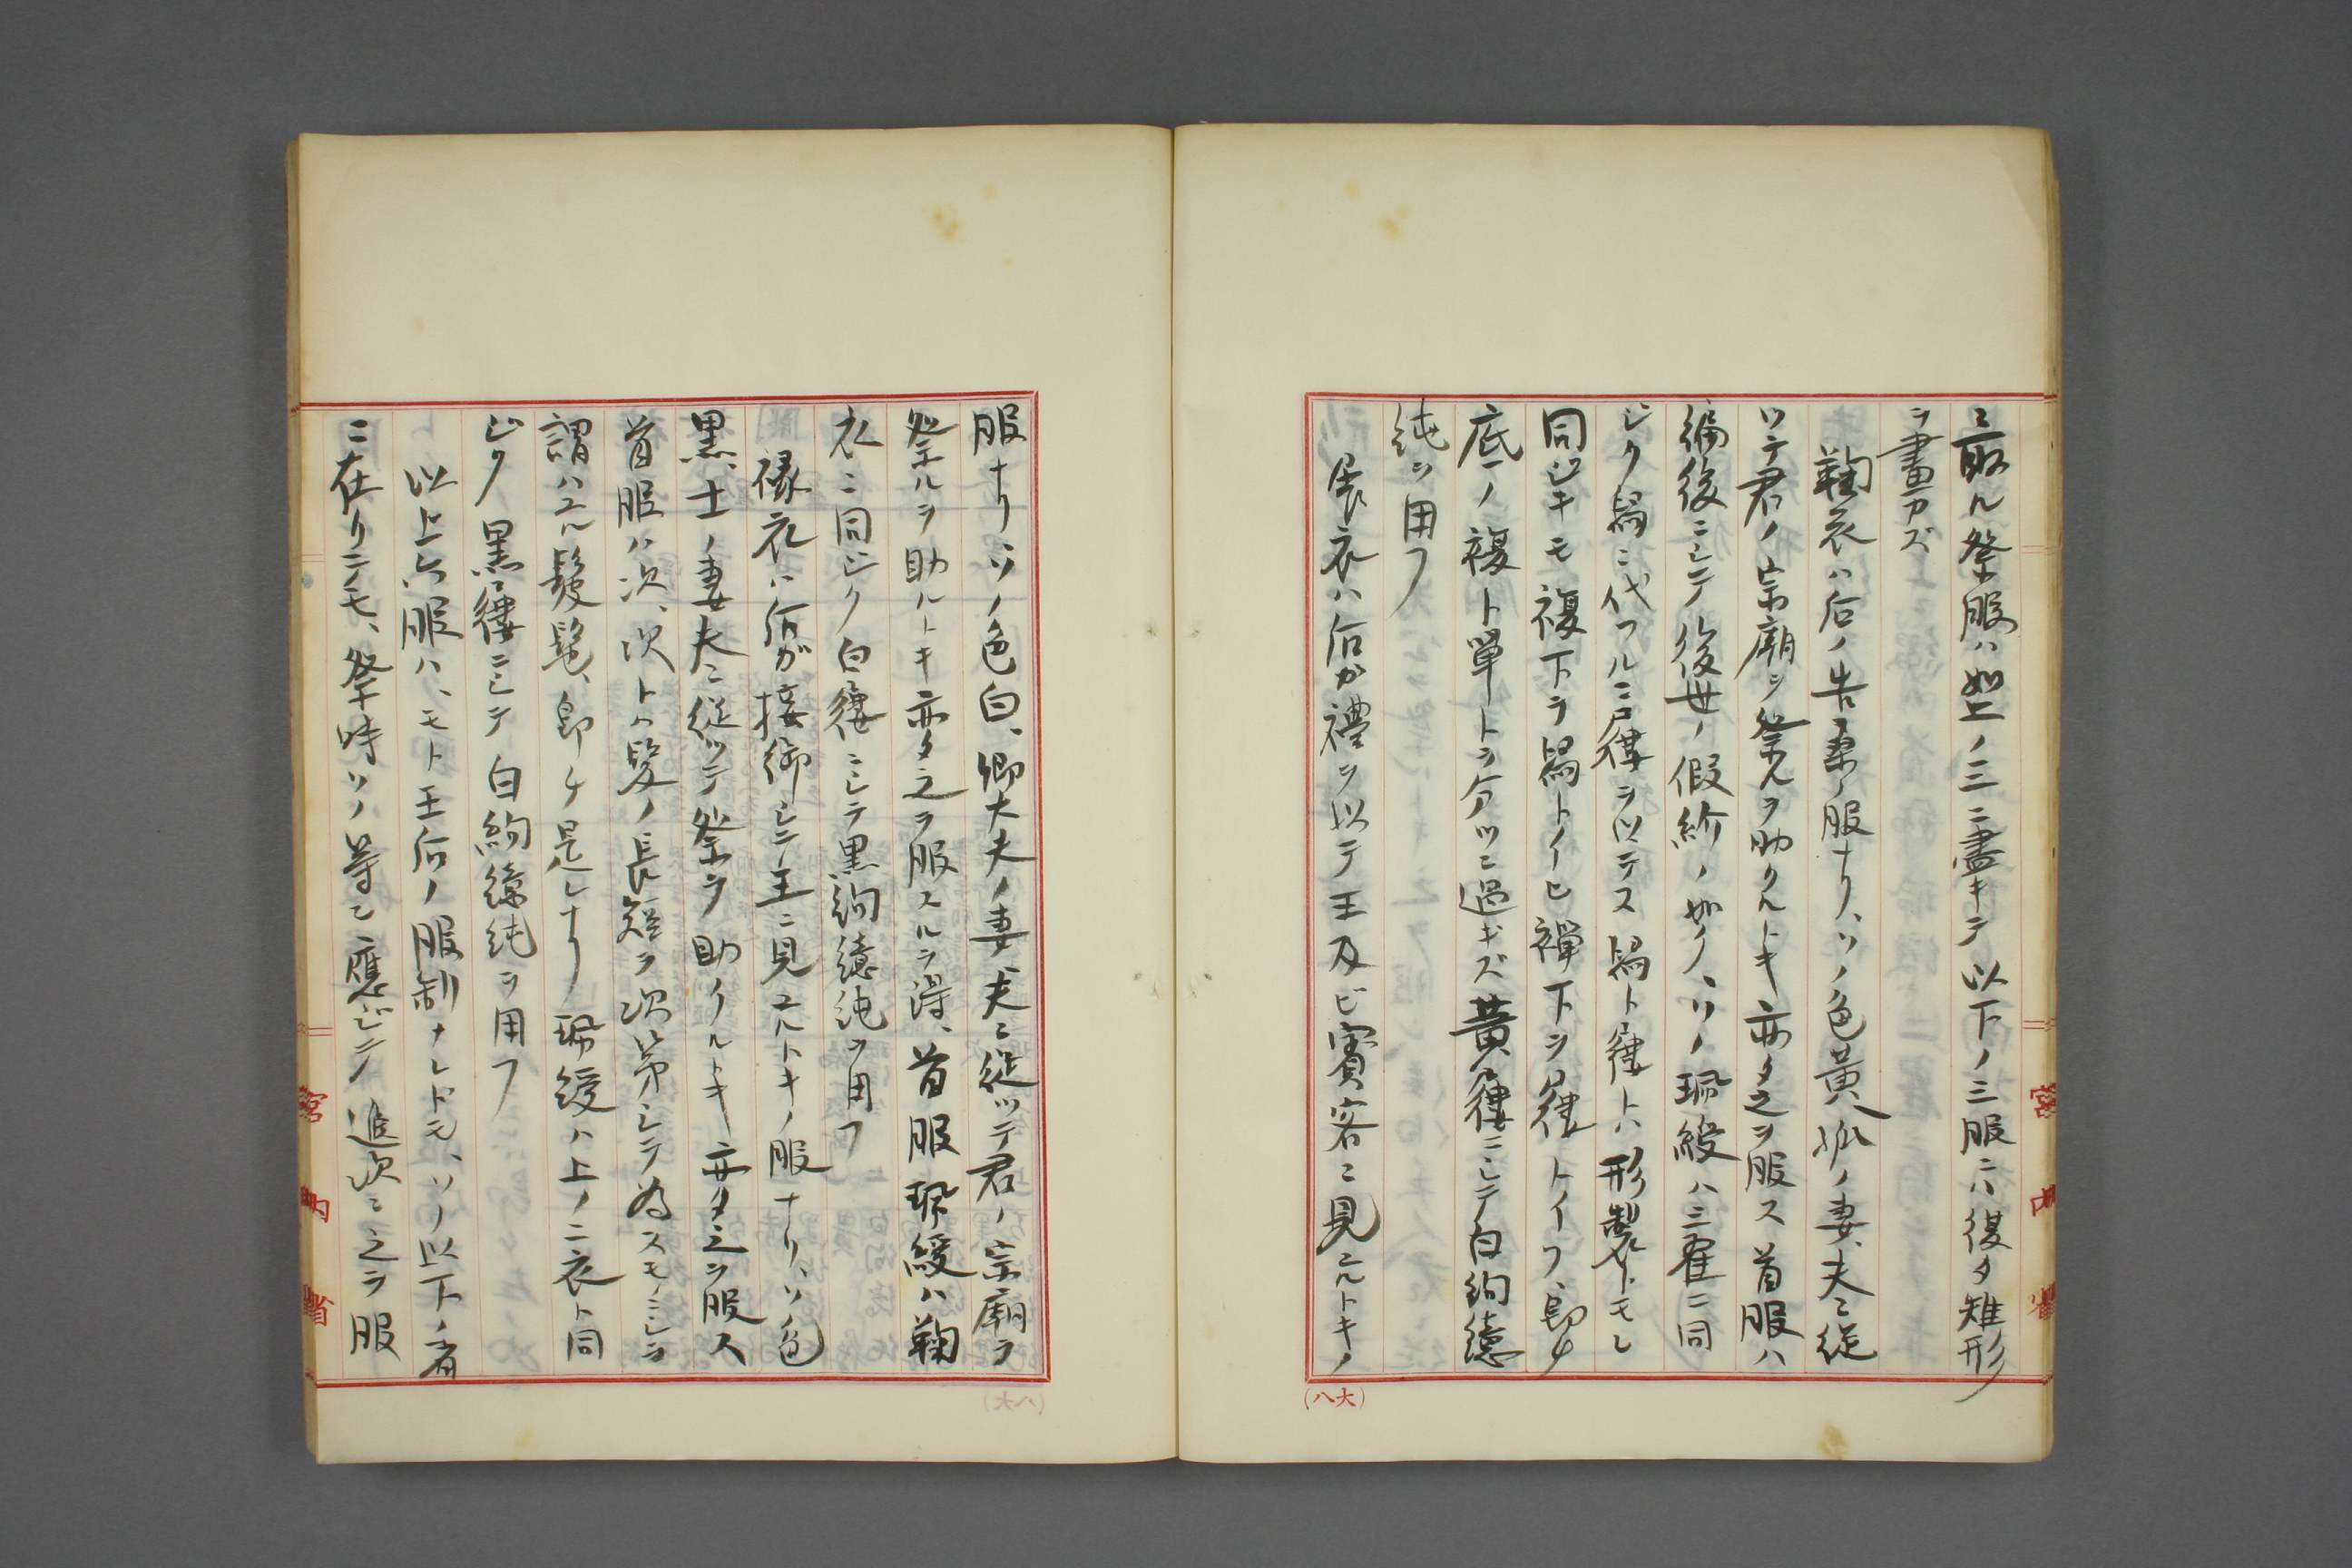 ニ取ル祭服ハ如上ノ三ニ盡キテ以下ノ三服ニハ復タ雉形
ヲ畫カズ
鞠衣ハ后ノ告桑ノ服ナリ、ソノ色黄、孤ノ妻、夫ニ從
ツテ君ノ宗廟ヲ祭ルヲ助クルトキ亦タ之ヲ服ス首服ハ
編後ニシテ後世ノ假紒ノ如ク、ソノ珮綬ハ三翟ニ同
ジク舄ニ代フルニ屨ヲ以テス舄ト屨トハ形製トモニ
同ジキモ複下ヲ舄トイヒ襌下ヲ屨トイフ、即チ
底ノ複ト單トヲ分ツニ過ギズ黄屨ニシテ白絇繶
純ヲ用フ
展衣ハ后ガ禮ヲ以テ王及ビ賓客ニ見ユルトキノ
服ナリソノ色白、卿大夫ノ妻夫ニ從ツテ君ノ宗廟ヲ
祭ルヲ助ルトキ亦タ之ヲ服スルヲ得、首服珮綬ハ鞠
衣ニ同ジク白屨ニシテ黒絇繶純ヲ用フ
褖衣ハ后ガ接御シテ王ニ見ユルトキノ服ナリ、ソノ色
黒、士ノ妻夫ニ從ツテ祭ヲ助クルトキ亦タ之ヲ服ス
首服ハ次、次トハ髮ノ長短ヲ次第シテ為スモノニシテ
謂ハユル髲髢、即チ是レナリ珮綬ハ上ノ二衣ト同
ジク黒屨ニシテ白絇繶純ヲ用フ
以上六服ハ、モト王后ノ服制ナレドモ、ソノ以下ノ者
ニ在リテモ、祭時ソノ等ニ應ジテ遞次ニ之ヲ服
宮内省
宮内省
(大八)